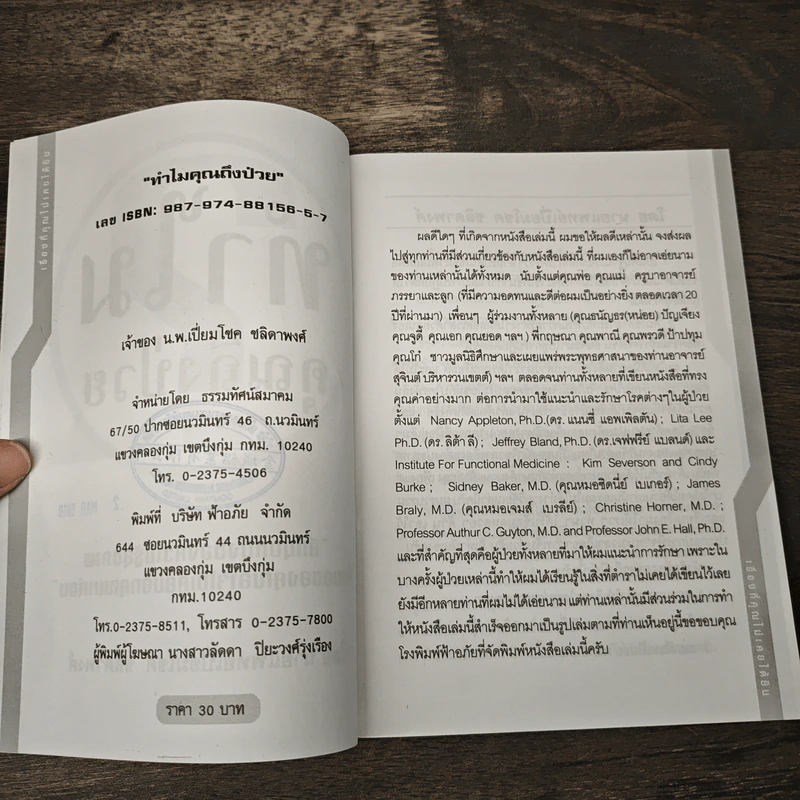 "ทำไมคุณถึงป่วย"
เลข ISBN: 987-974-88156-5-7
เจ้าของ น.พ.เปี่ยมโชค ชลิดาพงศ์
จำหน่ายโดย ธรรมทัศน์สมาคม
67/50 ปากซอยนวมินทร์ 46 ถ.นวมินทร์
แขวงคลองกุ่ม เขตบึงกุ่ม กทม. 10240
โทร. 0-2375-4506
พิมพ์ที่ บริษัท ฟ้าอภัย จำกัด
644 ซอยนวมินทร์ 44 ถนนนวมินทร์
แขวงคลองกุ่ม เขตบึงกุ่ม
กทม.10240
โทร.0-2375-8511, โทรสาร 0-2375-7800
ผู้พิมพ์ผู้โฆษณา นางสาวลัดดา ปิยะวงศ์รุ่งเรือง
ราคา 30 บาท
ผลดีใดๆ ที่เกิดจากหนังสือเล่มนี้ ผมขอให้ผลดีเหล่านั้น จงส่งผล
ไปสู่ทุกท่านที่มีส่วนเกี่ยวข้องกับหนังสือเล่มนี้ ที่ผมเองก็ไม่อาจเอ่ยนาม
ของท่านเหล่านั้นได้ทั้งหมด นับตั้งแต่คุณพ่อ คุณแม่ ครูบาอาจารย์
ภรรยาและลูก (ที่มีความอดทนและดีต่อผมเป็นอย่างยิ่ง ตลอดเวลา 20
ปีที่ผ่านมา) เพื่อนๆ ผู้ร่วมงานทั้งหลาย (คุณธนัญธร(หน่อย) ปัญเจียง
คุณจูดี้ คุณเอก คุณยอด ฯลฯ ) พี่กฤษณา คุณพาณี คุณพรวดี ป้าปทุม
คุณโก๋ ชาวมูลนิธิศึกษาและเผยแพร่พระพุทธศาสนาของท่านอาจารย์
สุจินต์ บริหารวนเขตต์) ฯลฯ ตลอดจนท่านทั้งหลายที่เขียนหนังสือที่ทรง
คุณค่าอย่างมาก ต่อการนำมาใช้แนะนำและรักษาโรคต่างๆในผู้ป่วย
ตั้งแต่ Nancy Appleton, Ph.D.(ดร. แนนซี่ แอพเพิลตัน) ; Lita Lee
Ph.D. (ดร. ลิต้า ลี) ; Jeffrey Bland, Ph.D. (ดร.เจฟฟรีย์ แบลนด์) และ
Institute For Functional Medicine : Kim Severson and Cindy
Burke ; Sidney Baker, M.D. (คุณหมอซิดนี่ย์ เบเกอร์) ; James
Braly, M.D. (คุณหมอเจมส์ เบรลีย์) ; Christine Horner, M.D. ;
Professor Authur C. Guyton, M.D. and Professor John E. Hall, Ph.D.
และที่สำคัญที่สุดคือผู้ป่วยทั้งหลายที่มาให้ผมแนะนำการรักษา เพราะใน
บางครั้งผู้ป่วยเหล่านี้ทำให้ผมได้เรียนรู้ในสิ่งที่ตำราไม่เคยได้เขียนไว้เลย
ยังมีอีกหลายท่านที่ผมไม่ได้เอ่ยนาม แต่ท่านเหล่านั้นมีส่วนร่วมในการทำ
ให้หนังสือเล่มนี้สำเร็จออกมาเป็นรูปเล่มตามที่ท่านเห็นอยู่นี้ขอขอบคุณ
โรงพิมพ์ฟ้าอภัยที่จัดพิมพ์หนังสือเล่มนี้ครับ
เรื่องที่คุณไม่เคยได้ยิน